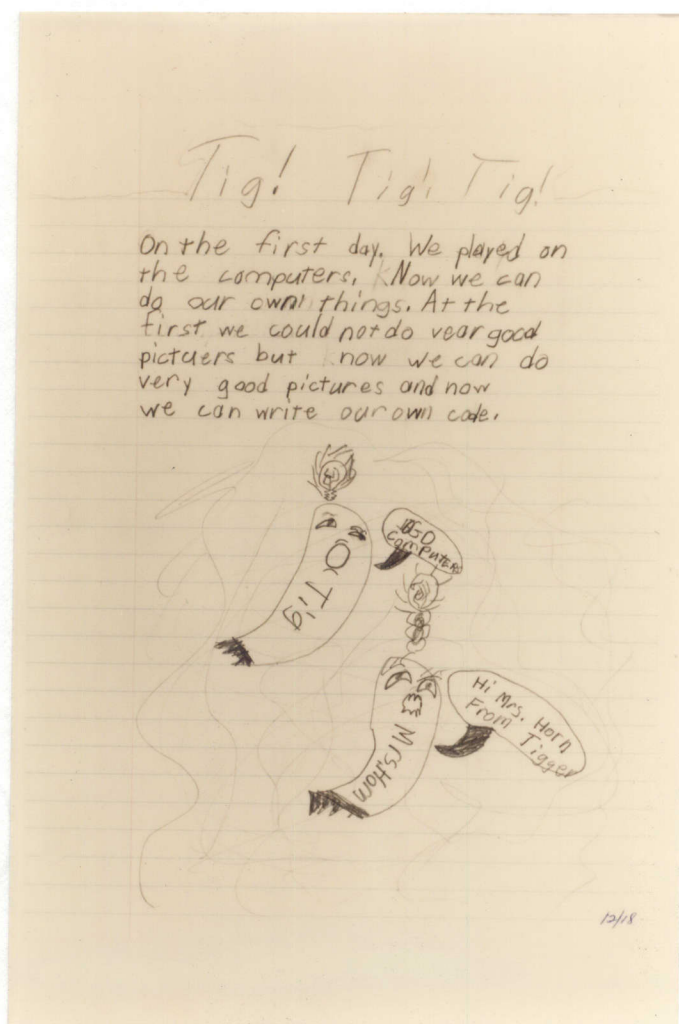 Tig! Tig! Tig!
On the first day. We played on
the computers. Now we can
do our own things. At the
first we could not do vear good
pictuers but now we can do
very good pictures and now
we can write our own code.
GO
computers
Tig
Hi Mrs. Horn
From Tigger
Mrs. Horn
12/18